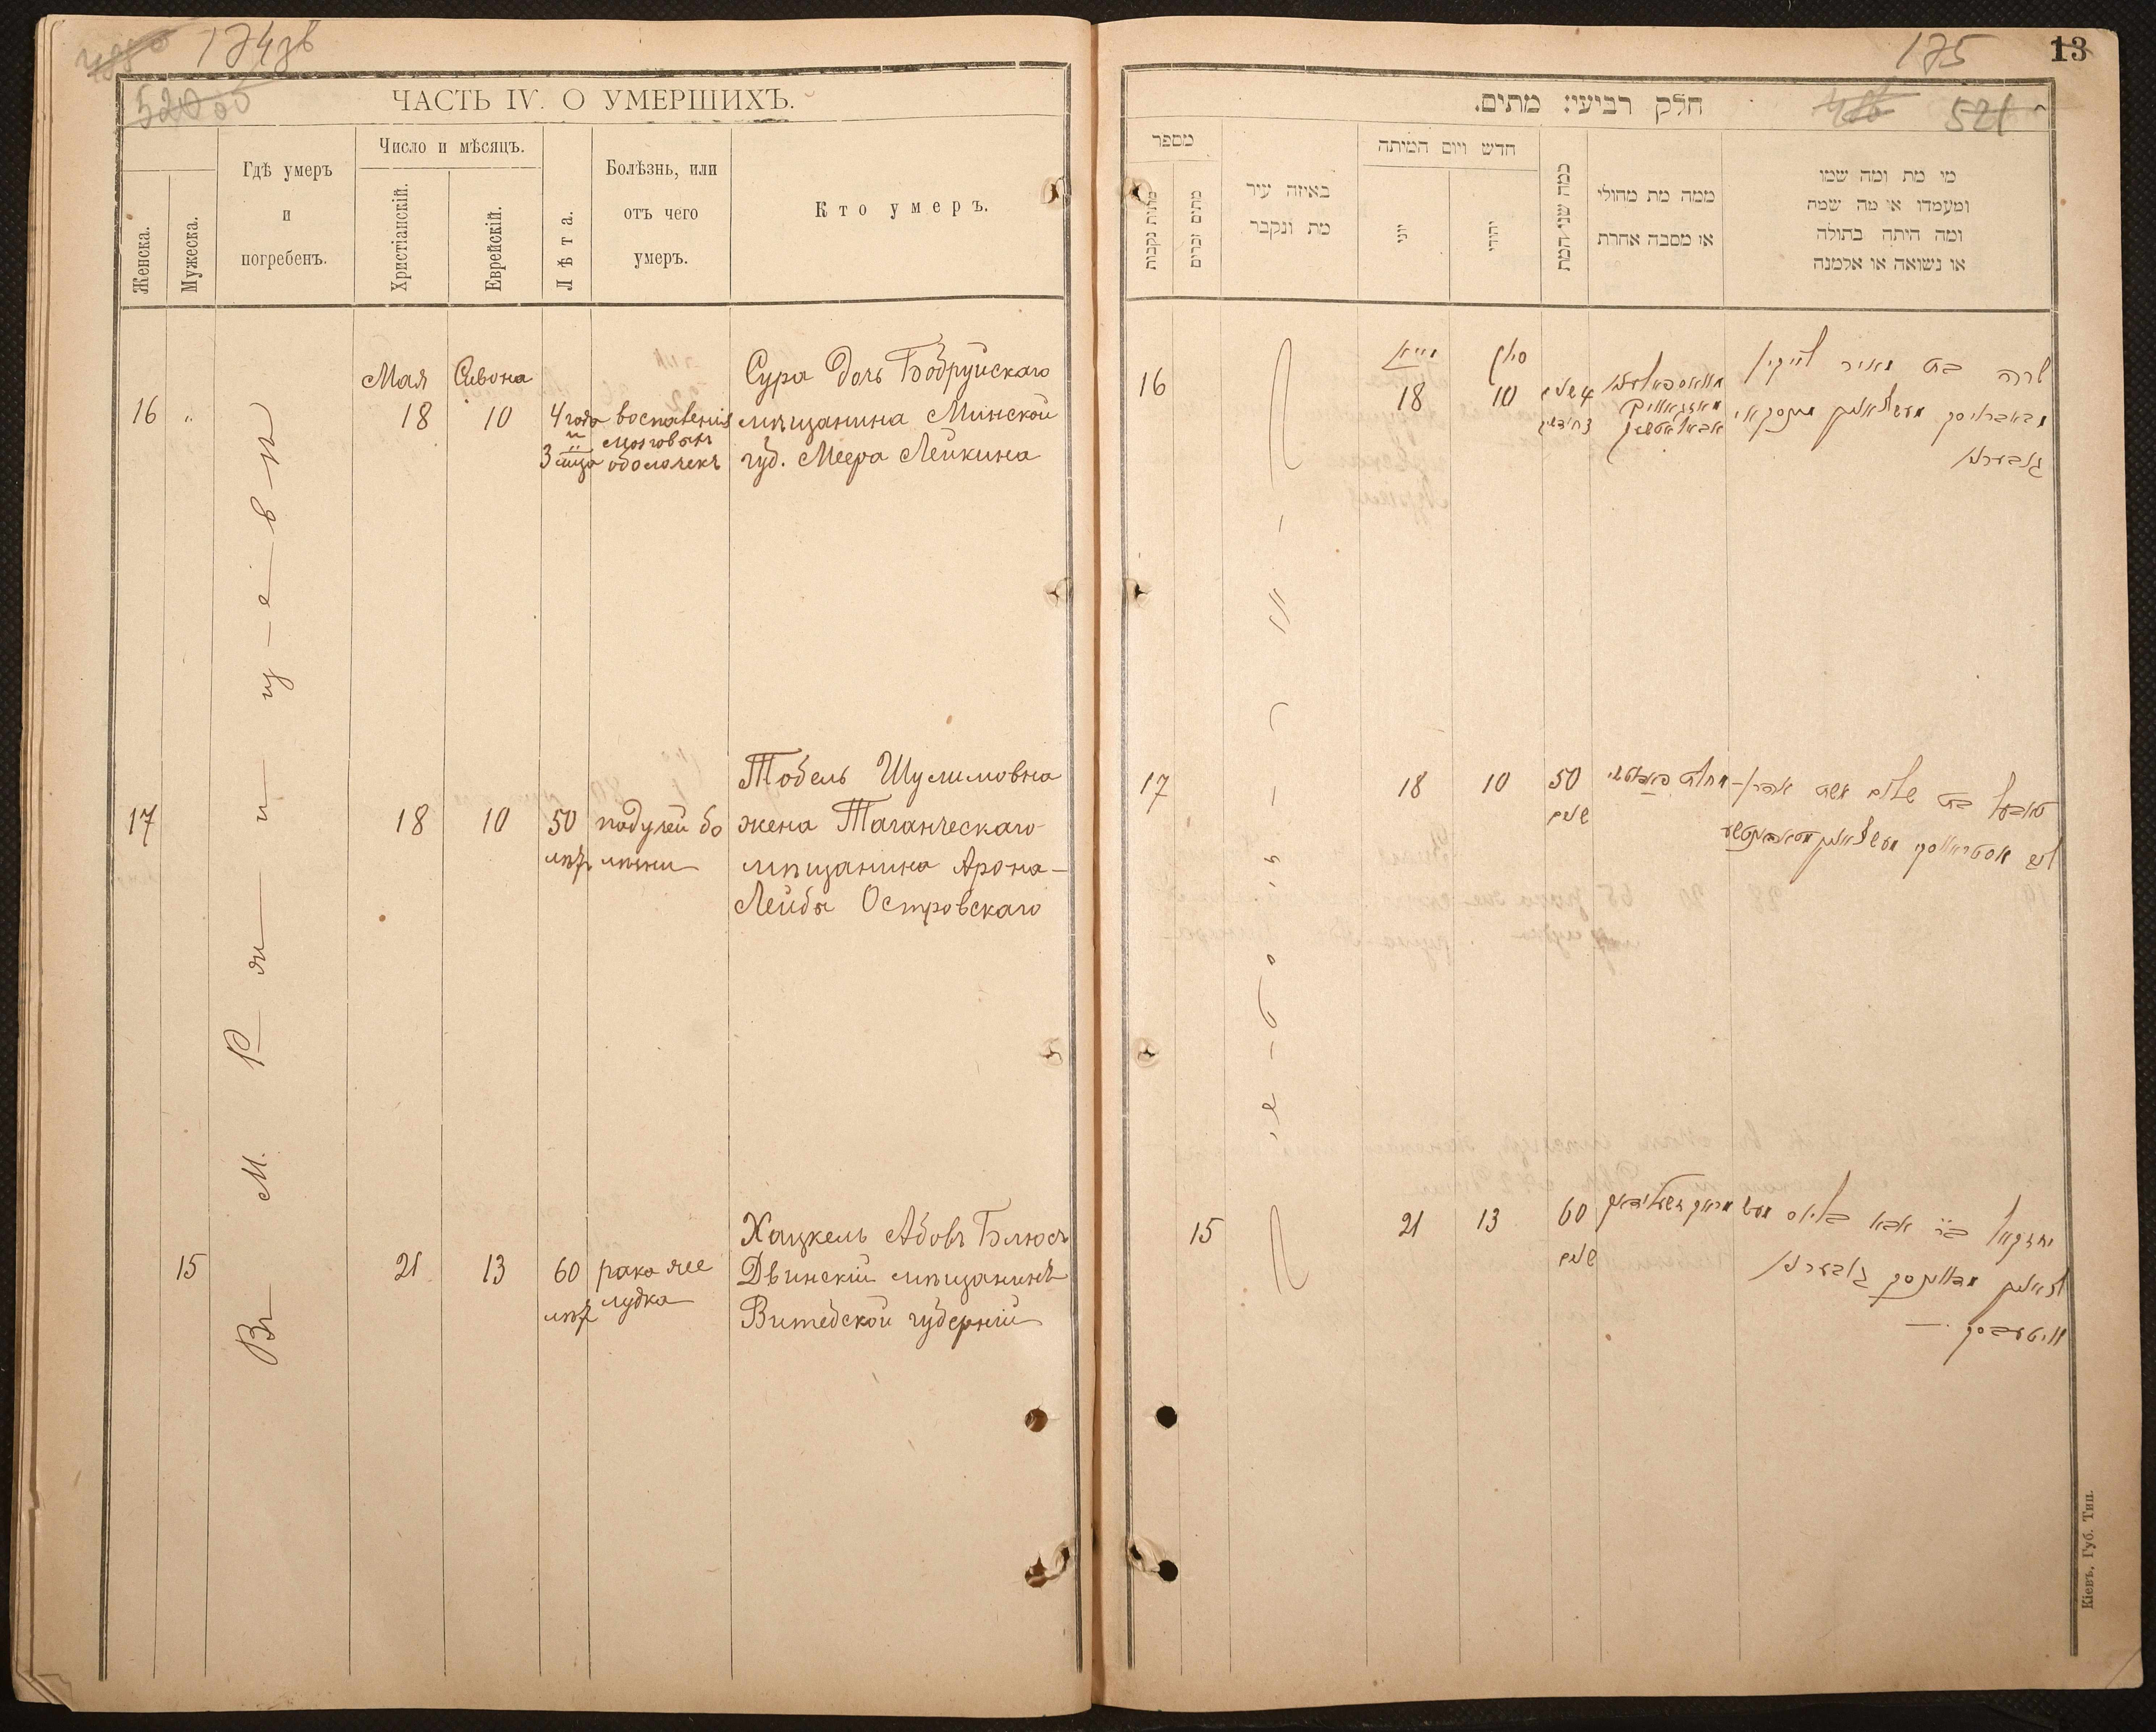 174 об
520 об
ЧАСТЬ IV. О УМЕРШИХЪ.
Женска.
Мужеска.
Гдѣ умеръ
и
погребенъ.
Число и мѣсяцъ.
Христіанскій.
Еврейскій.
Лѣта.
Болѣзнь, или
отъ чего
умеръ.
Кто умеръ.
Въ М. Ржищевѣ
Мая Сивона
16 18 10 4 года и 3 м-ца
воспаленія
мозговыхъ
оболочекъ
Сура дочь Бобруйскаго
мѣщанина Минской
губ. Меера Лейкина
17 18 10 50 лѣтъ
падучей бо
лѣзни
Тобель Шулимовна
жена Таганческаго
мѣщанина Арона-
Лейбы Островскаго
15 21 13 60 лѣтъ
рака же
лудка
Хацкель Абовъ Блюсъ
Двинскій мѣщанинъ
Витебской губерніи
175
13
521
חלק רביעי: מתים.
מספר
מתות נקבות
מתים זכרים
באיזה עיר
מת ונקבר
חדש ויום המיתה
יוני
יהודי
כמה שני המת
ממה מת מחולי
או מסבה אחרת
מי מת ומה שמו
ומעמדו או מה שמת
ומה היתה בתולה
או נשואה או אלמנה
16
מייא
18
סיון
10
שרה בת מאיר לייקין
17
18
10
50
שנים
טאבעל בת שלום אשת אהרן
15
21
13
60
שנים
יחזקאל ב״ר אבא בליוס
וויטעבסק
Кіевъ, Губ. Тип.